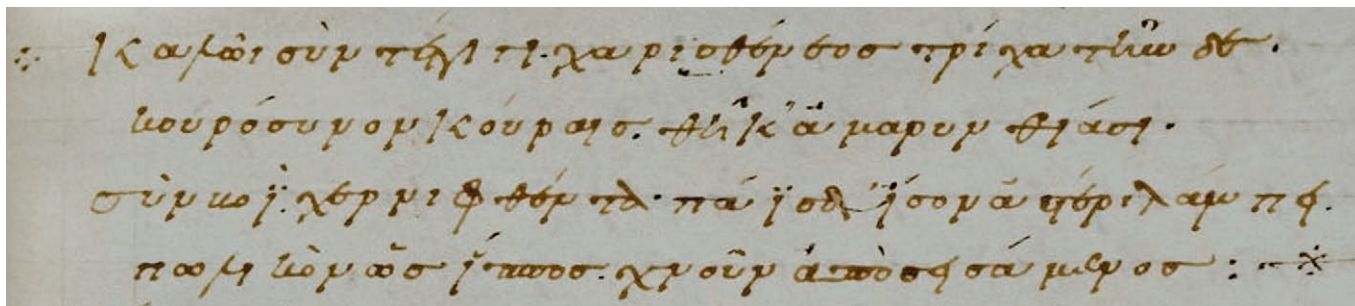 Καλῶι σὺν τέττιγι· χαρισθένεος τρίχα τὴν δε.
κουρόσυνον κούραις. θῆκ' ἀμαρυνθιάσι.
σὺν βοῒ. χερνιφθέντα· πάϊς δ' ἴσον ἀστέρι λάμπει.
πωλικὸν ὣς ἵππος. χνοῦν ἀποσεισάμενος :